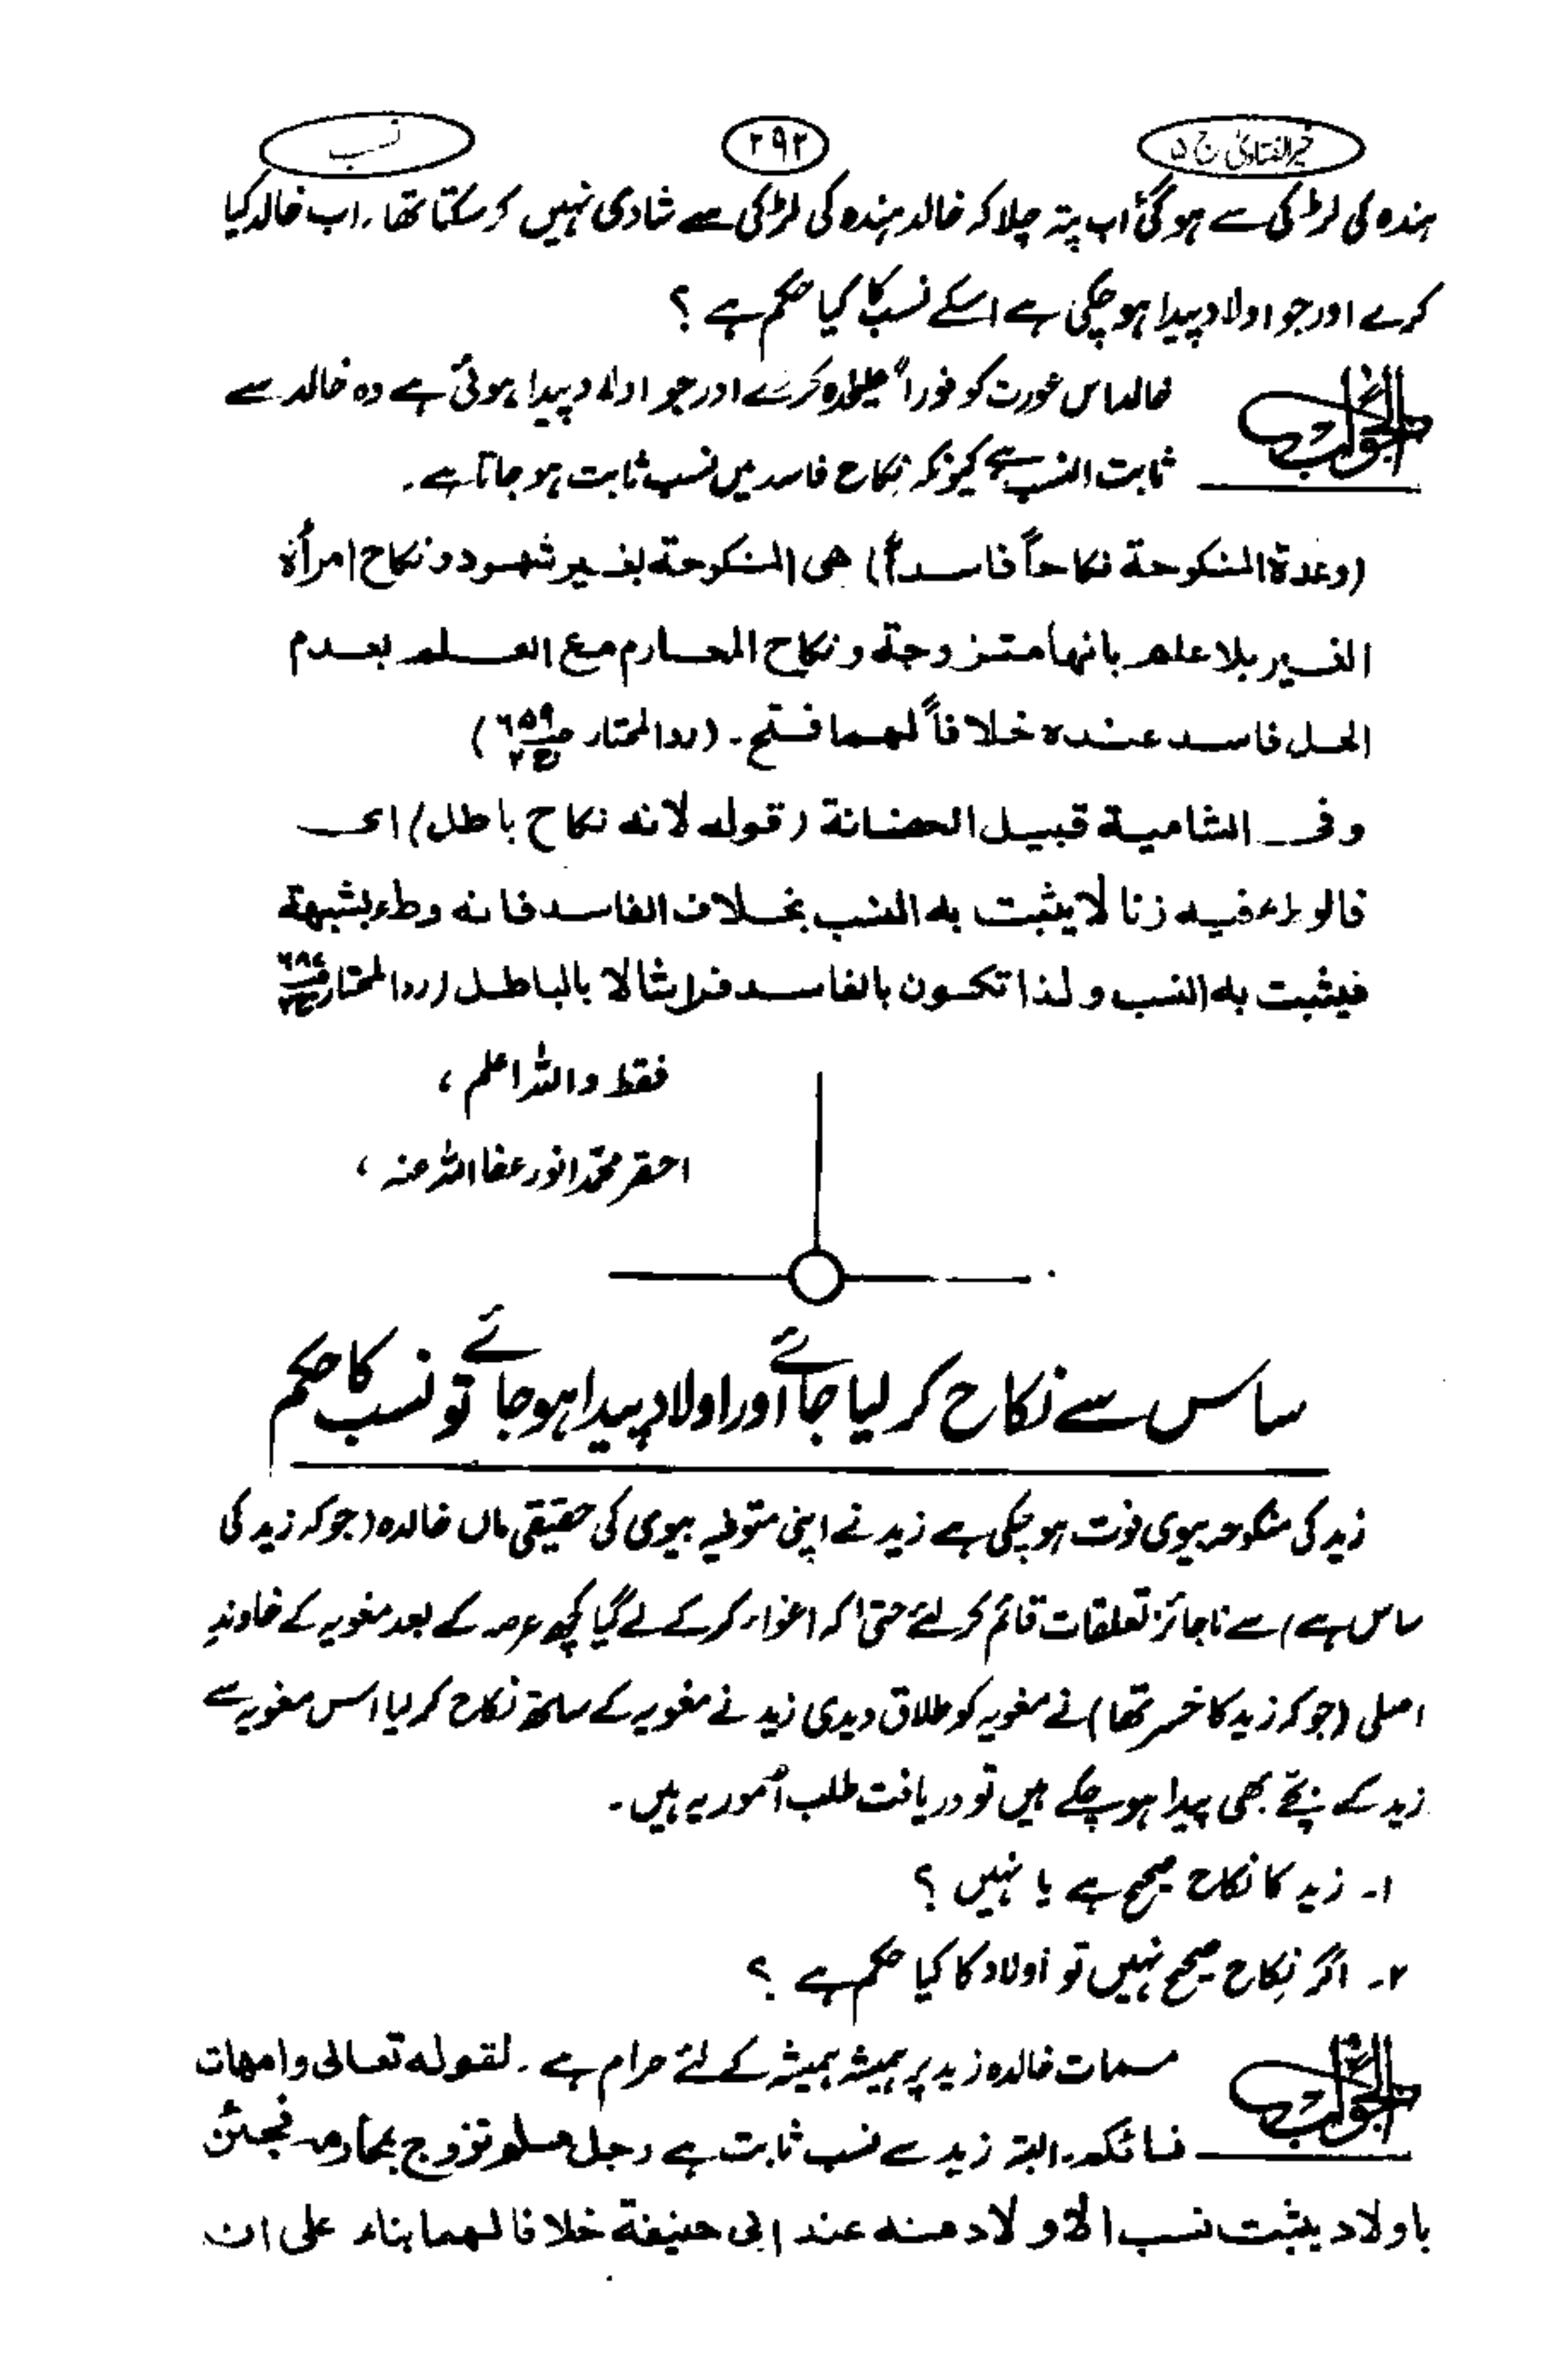 خیر الفتاویٰ ج ۵
۲۹۲
نسب
ہندہ کی لڑکی سے ہو گئی اب پتہ چلا کہ خالد ہندہ کی لڑکی سے شادی نہیں کر سکتا تھا۔ اب خالد کیا
کرے اور جو اولاد پیدا ہو چکی ہے اسکے نسب کا کیا حکم ہے ؟
الجواب
خالد اس عورت کو فوراً علیحدہ کرے اور جو اولاد پیدا ہوئی ہے وہ خالد سے
ثابت النسب ہے کیونکہ نکاح فاسد میں نسب ثابت ہو جاتا ہے۔
(وعدة المنكوحة نكاحاً فاسداً) هى المنكوحة بغير شهود ونكاح امرأة
الغير بلا علم بانها متزوجة ونكاح المحارم مع العلم بعدم
الحل فاسد عنده خلافاً لهما فتح۔ (ردالمختار ص۶۵۹ ج۲)
وفى الشامية قبيل الحضانة (قوله لانه نكاح باطل) اى
فالوطء فيه زنا لا يثبت به النسب بخلاف الفاسد فانه وطء بشبهة
فيثبت به النسب ولذا تكون بالفاسد فراشا لا بالباطل (ردالمختار
فقط واللہ اعلم ،
احقر محمد انور عفا اللہ عنہ ،
ساس سے نکاح کر لیا جائے اور اولاد پیدا ہو جائے تو نسب کا حکم
زید کی منکوحہ بیوی فوت ہو چکی ہے زید نے اپنی متوفیہ بیوی کی حقیقی ماں خالدہ (جو کہ زید کی
ساس ہے) سے ناجائز تعلقات قائم کر لئے حتیٰ کہ اغواء کر کے لے گیا کچھ عرصہ کے بعد مغویہ کے خاوندِ
اصلی (جو کہ زید کا خسر تھا) نے مغویہ کو طلاق دیدی زید نے مغویہ کے ساتھ نکاح کر لیا اس مغویہ سے
زید کے بچے بھی پیدا ہو چکے ہیں تو دریافت طلب اُمور یہ ہیں۔
۱۔ زید کا نکاح صحیح ہے یا نہیں ؟
۲۔ اگر نکاح صحیح نہیں تو اولاد کا کیا حکم ہے ؟
الجواب
مسمات خالدہ زید پر ہمیشہ ہمیشہ کے لئے حرام ہے۔ لقوله تعالى وامهات
نسائكم۔ البتہ زید سے نسب ثابت ہے رجل مسلم تزوج بمحارمه فجئن
باولاد يثبت نسب الاولاد منه عند ابى حنيفة خلافا لهما بناء على ان